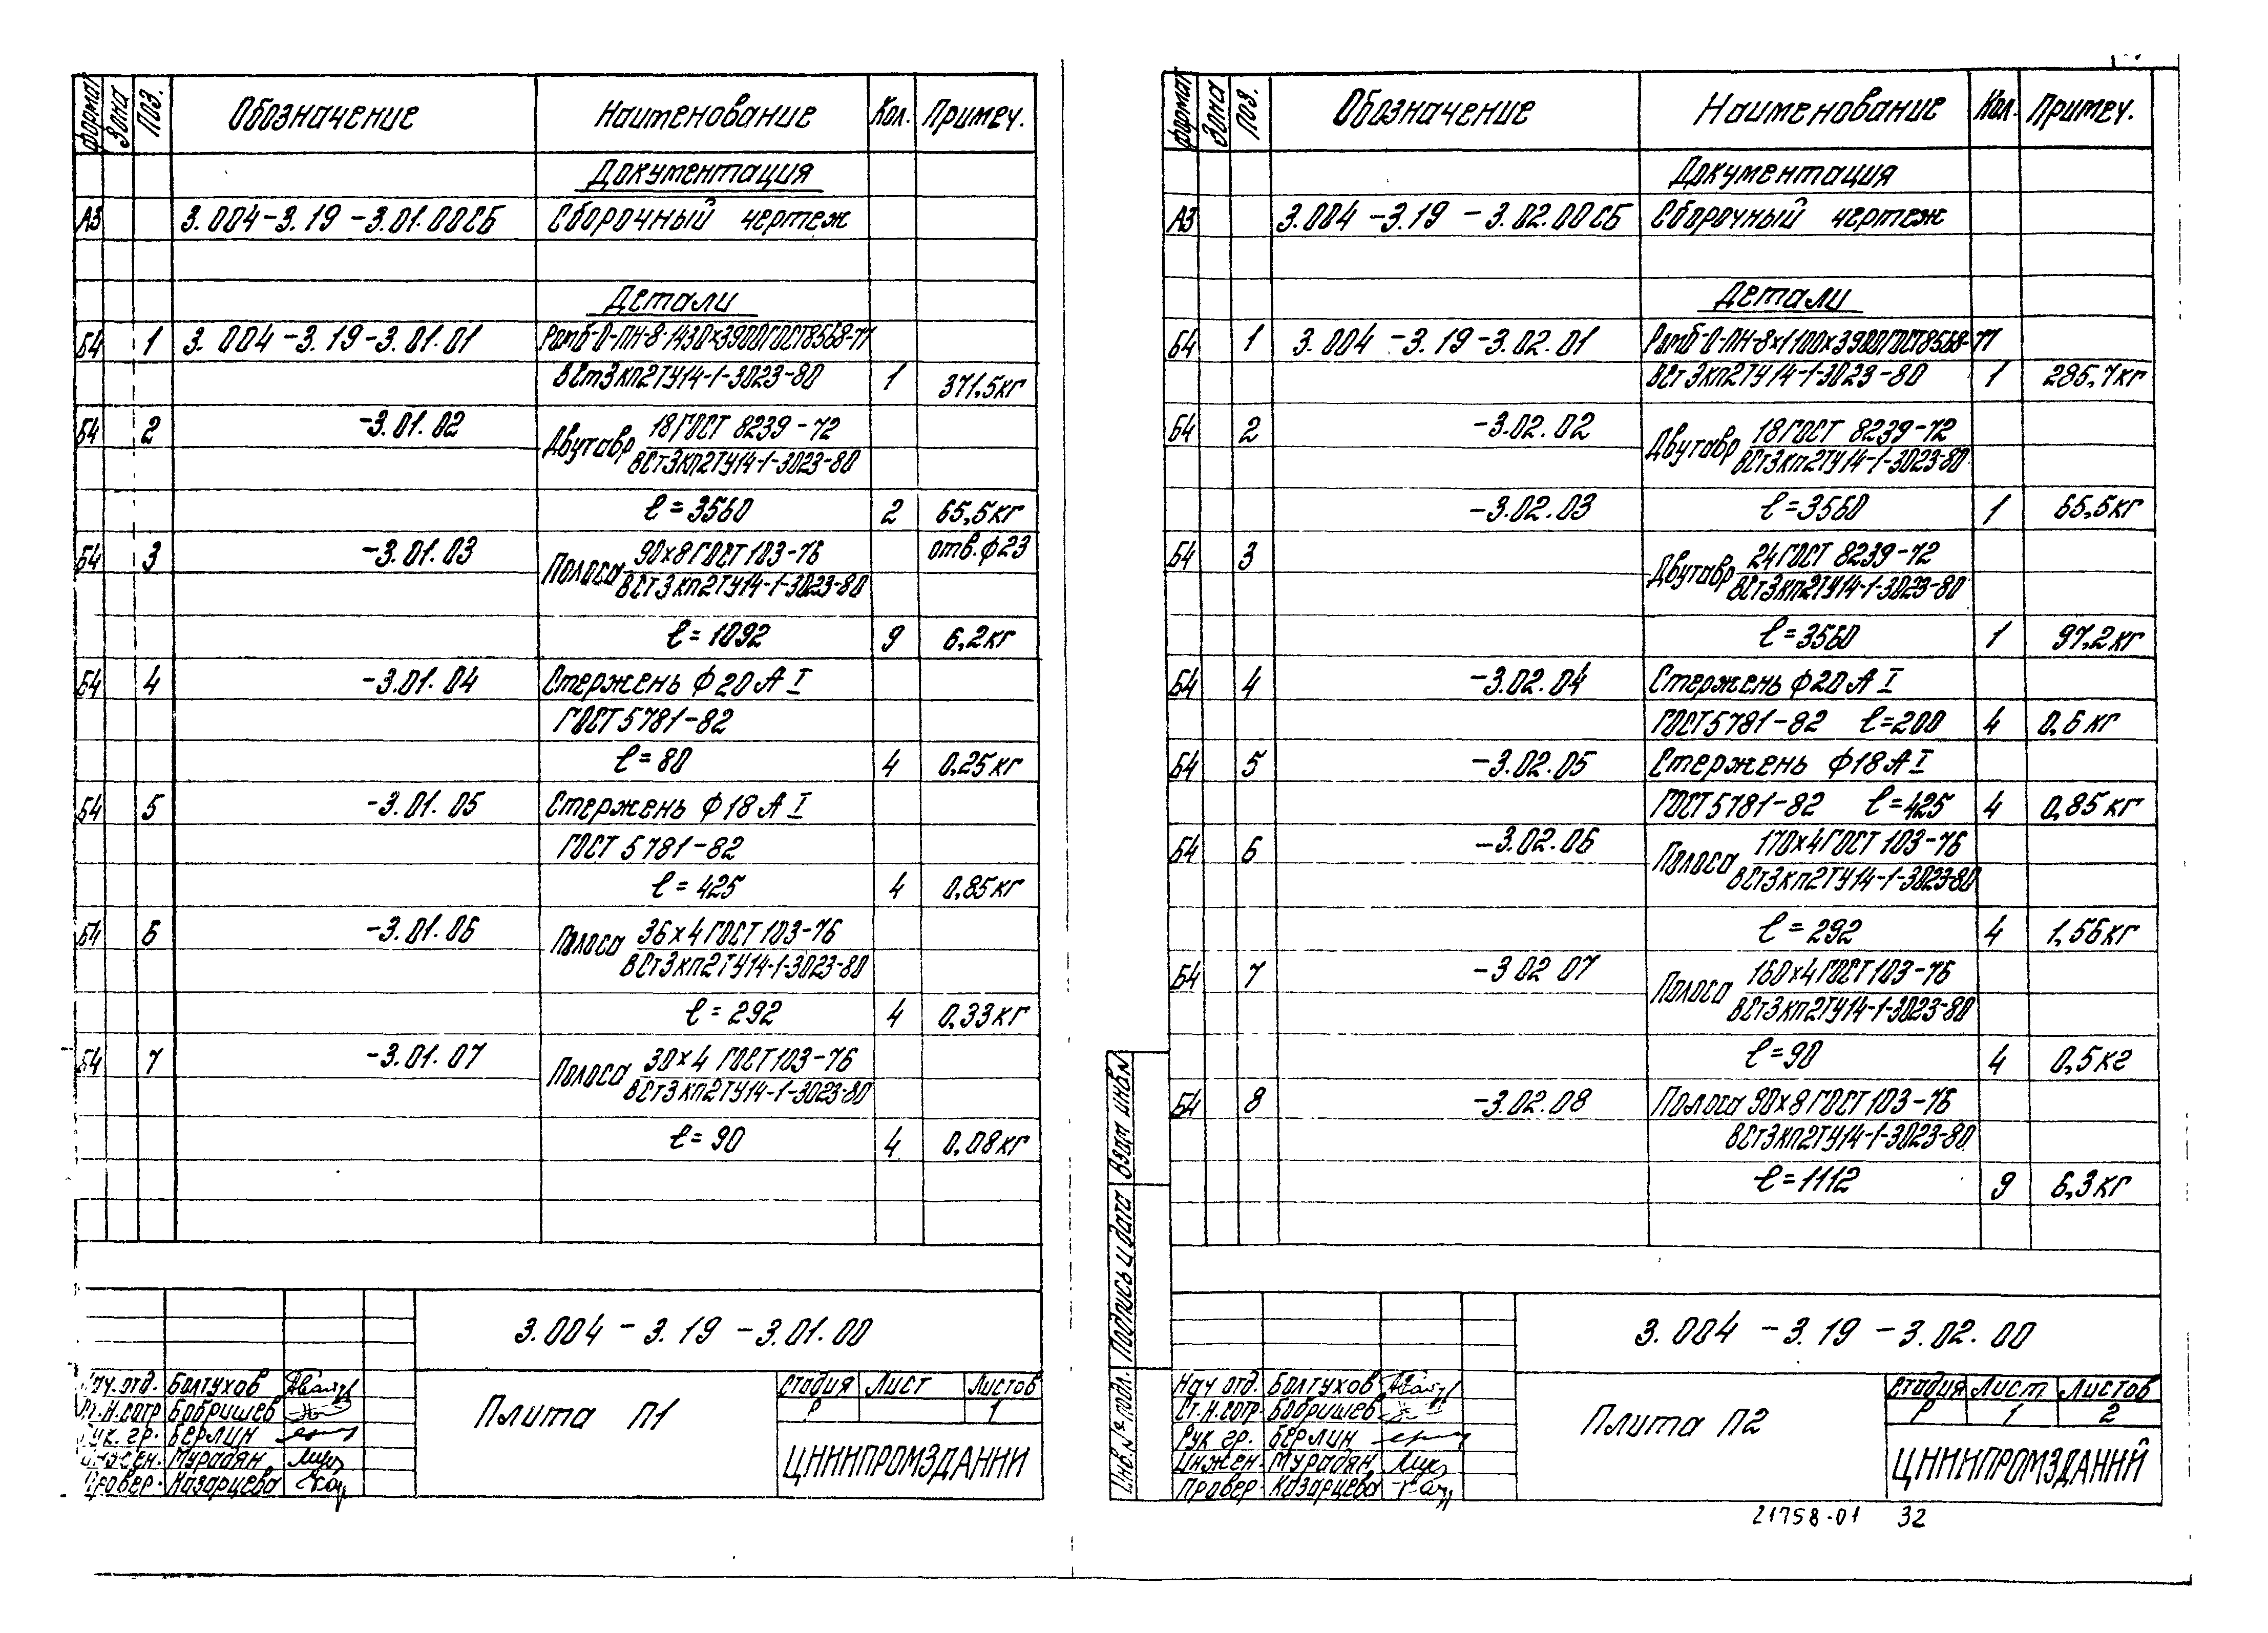 Формат Зона Поз. Обозначение Наименование Кол. Примеч.
Документация
А3 3.004-3.19-3.01.00СБ Сборочный чертеж
Детали
Б4 1 3.004-3.19-3.01.01 Ромб-О-ПН-8-1430×3900ГОСТ8568-77
ВСт3кп2ТУ14-1-3023-80 1 371,5кг
Б4 2 -3.01.02 Двутавр 18ГОСТ 8239-72
ВСт3кп2ТУ14-1-3023-80
ℓ=3560 2 65,5кг
Б4 3 -3.01.03 Полоса 90×8ГОСТ103-76 отв.ф23
ВСт3кп2ТУ14-1-3023-80
ℓ=1092 9 6,2кг
Б4 4 -3.01.04 Стержень ф20АI
ГОСТ5781-82
ℓ=80 4 0,25кг
Б4 5 -3.01.05 Стержень ф18АI
ГОСТ5781-82
ℓ=425 4 0,85кг
Б4 6 -3.01.06 Полоса 36×4ГОСТ103-76
ВСт3кп2ТУ14-1-3023-80
ℓ=292 4 0,33кг
Б4 7 -3.01.07 Полоса 30×4 ГОСТ103-76
ВСт3кп2ТУ14-1-3023-80
ℓ=90 4 0,08кг
3.004-3.19-3.01.00
Нач.отд. Болтухов
Ст.н.сотр Бобришев
Рук.гр. Берлин
Инжен. Мурадян
Провер. Казарцева
Плита П1
Стадия Лист Листов
Р 1
ЦНИИПРОМЗДАНИЙ
Формат Зона Поз. Обозначение Наименование Кол. Примеч.
Документация
А3 3.004-3.19-3.02.00СБ Сборочный чертеж
Детали
Б4 1 3.004-3.19-3.02.01 Ромб-О-ПН-8×1100×3900ГОСТ8568-77
ВСт3кп2ТУ14-1-3023-80 1 285,7кг
Б4 2 -3.02.02 Двутавр 18ГОСТ 8239-72
ВСт3кп2ТУ14-1-3023-80
-3.02.03 ℓ=3560 1 65,5кг
Б4 3 Двутавр 24ГОСТ 8239-72
ВСт3кп2ТУ14-1-3023-80
ℓ=3560 1 97,2кг
Б4 4 -3.02.04 Стержень ф20АI
ГОСТ5781-82 ℓ=200 4 0,6кг
Б4 5 -3.02.05 Стержень ф18АI
ГОСТ5781-82 ℓ=425 4 0,85кг
Б4 6 -3.02.06 Полоса 170×4ГОСТ103-76
ВСт3кп2ТУ14-1-3023-80
ℓ=292 4 1,56кг
Б4 7 -3 02 07 Полоса 160×4ГОСТ103-76
ВСт3кп2ТУ14-1-3023-80
ℓ=90 4 0,5кг
Б4 8 -3.02.08 Полоса 90×8ГОСТ103-76
ВСт3кп2ТУ14-1-3023-80
ℓ=1112 9 6,3кг
Взам инв№
Подпись и дата
Инв.№ подл.
3.004-3.19-3.02.00
Нач отд. Болтухов
Ст.н.сотр. Бобришев
Рук гр. Берлин
Инжен. Мурадян
Провер Казарцева
Плита П2
Стадия Лист Листов
Р 1 2
ЦНИИПРОМЗДАНИЙ
21758-01 32